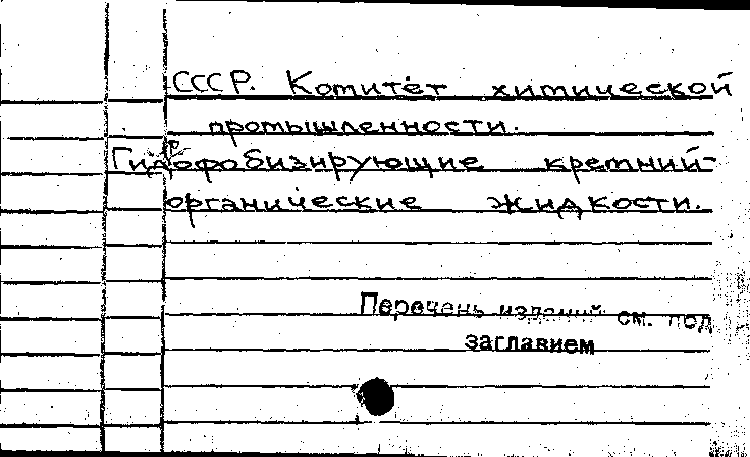 СССР. Комитет химической
промышленности.
Гидрофобизирующие кремний-
органические жидкости.
Перечень изданий см. под
заглавием